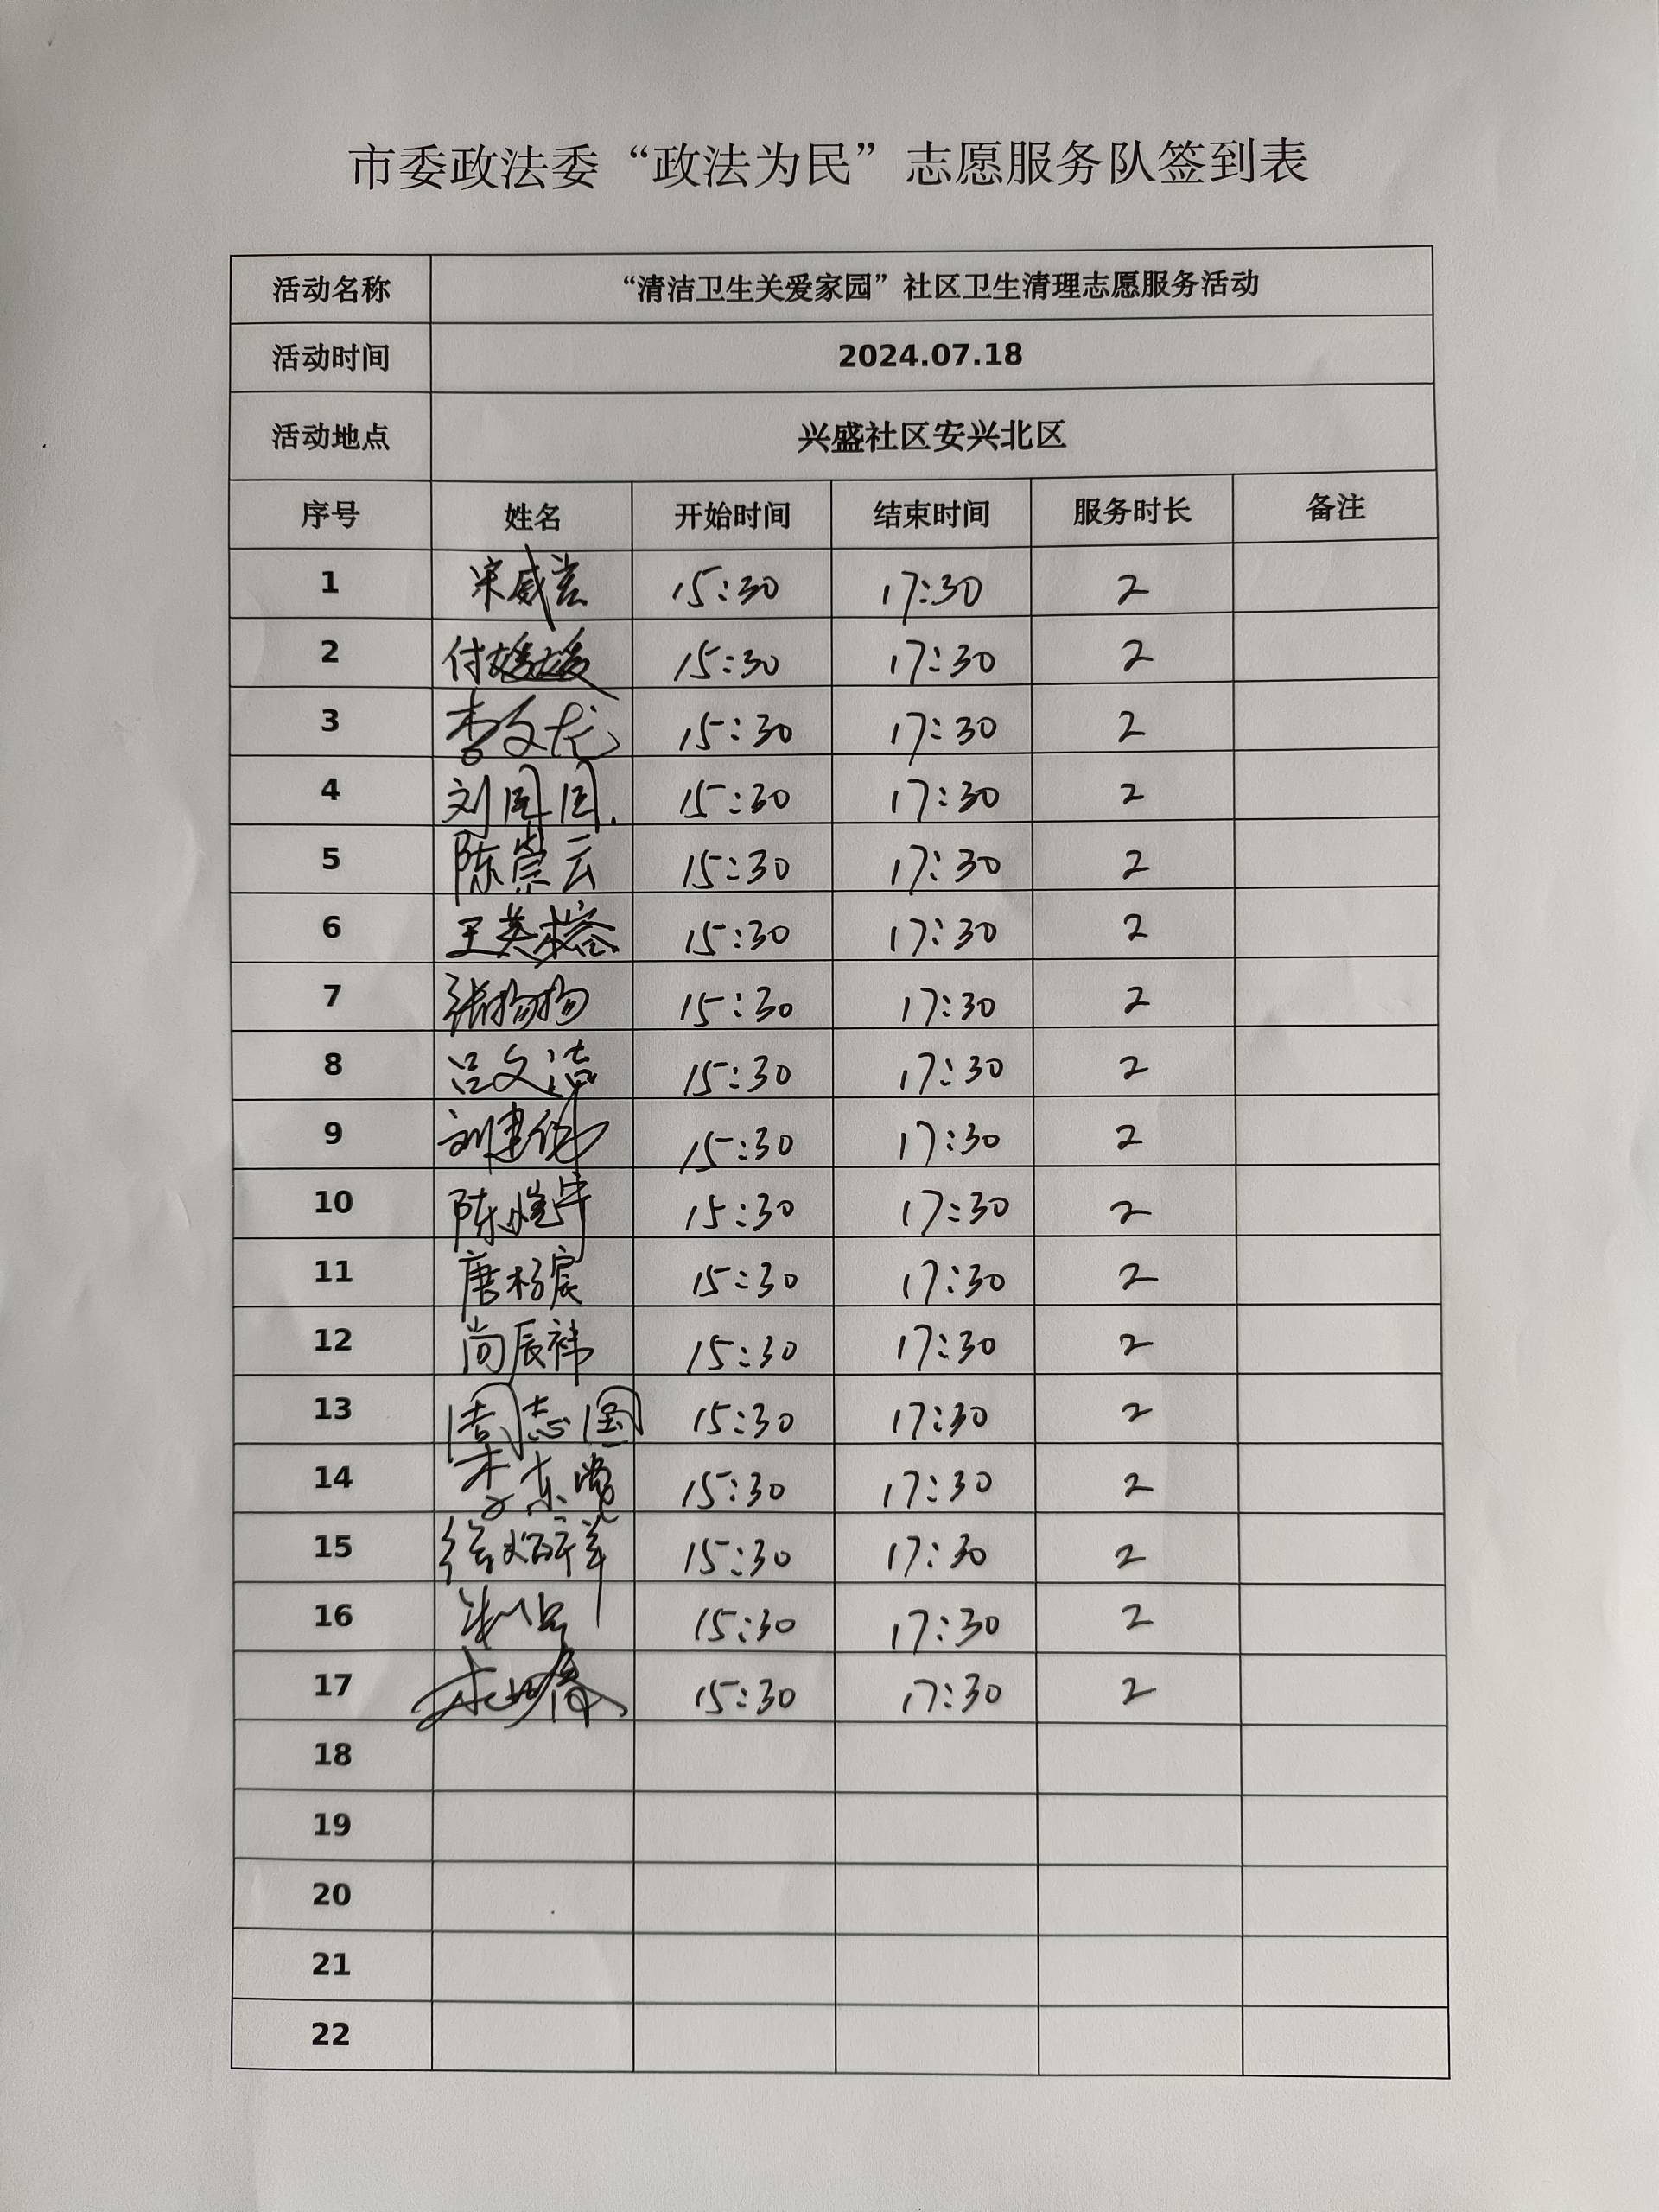 市委政法委“政法为民”志愿服务队签到表
活动名称 “清洁卫生关爱家园”社区卫生清理志愿服务活动
活动时间 2024.07.18
活动地点 兴盛社区安兴北区
序号 姓名 开始时间 结束时间 服务时长 备注
1 宋威 15:30 17:30 2
2 付媛媛 15:30 17:30 2
3 李文龙 15:30 17:30 2
4 刘 15:30 17:30 2
5 陈崇云 15:30 17:30 2
6 王英榕 15:30 17:30 2
7 张扬扬 15:30 17:30 2
8 吕文洁 15:30 17:30 2
9 刘建伟 15:30 17:30 2
10 陈 15:30 17:30 2
11 唐杨宸 15:30 17:30 2
12 尚辰祎 15:30 17:30 2
13 周志国 15:30 17:30 2
14 李东 15:30 17:30 2
15 徐 15:30 17:30 2
16 15:30 17:30 2
17 15:30 17:30 2
18
19
20
21
22